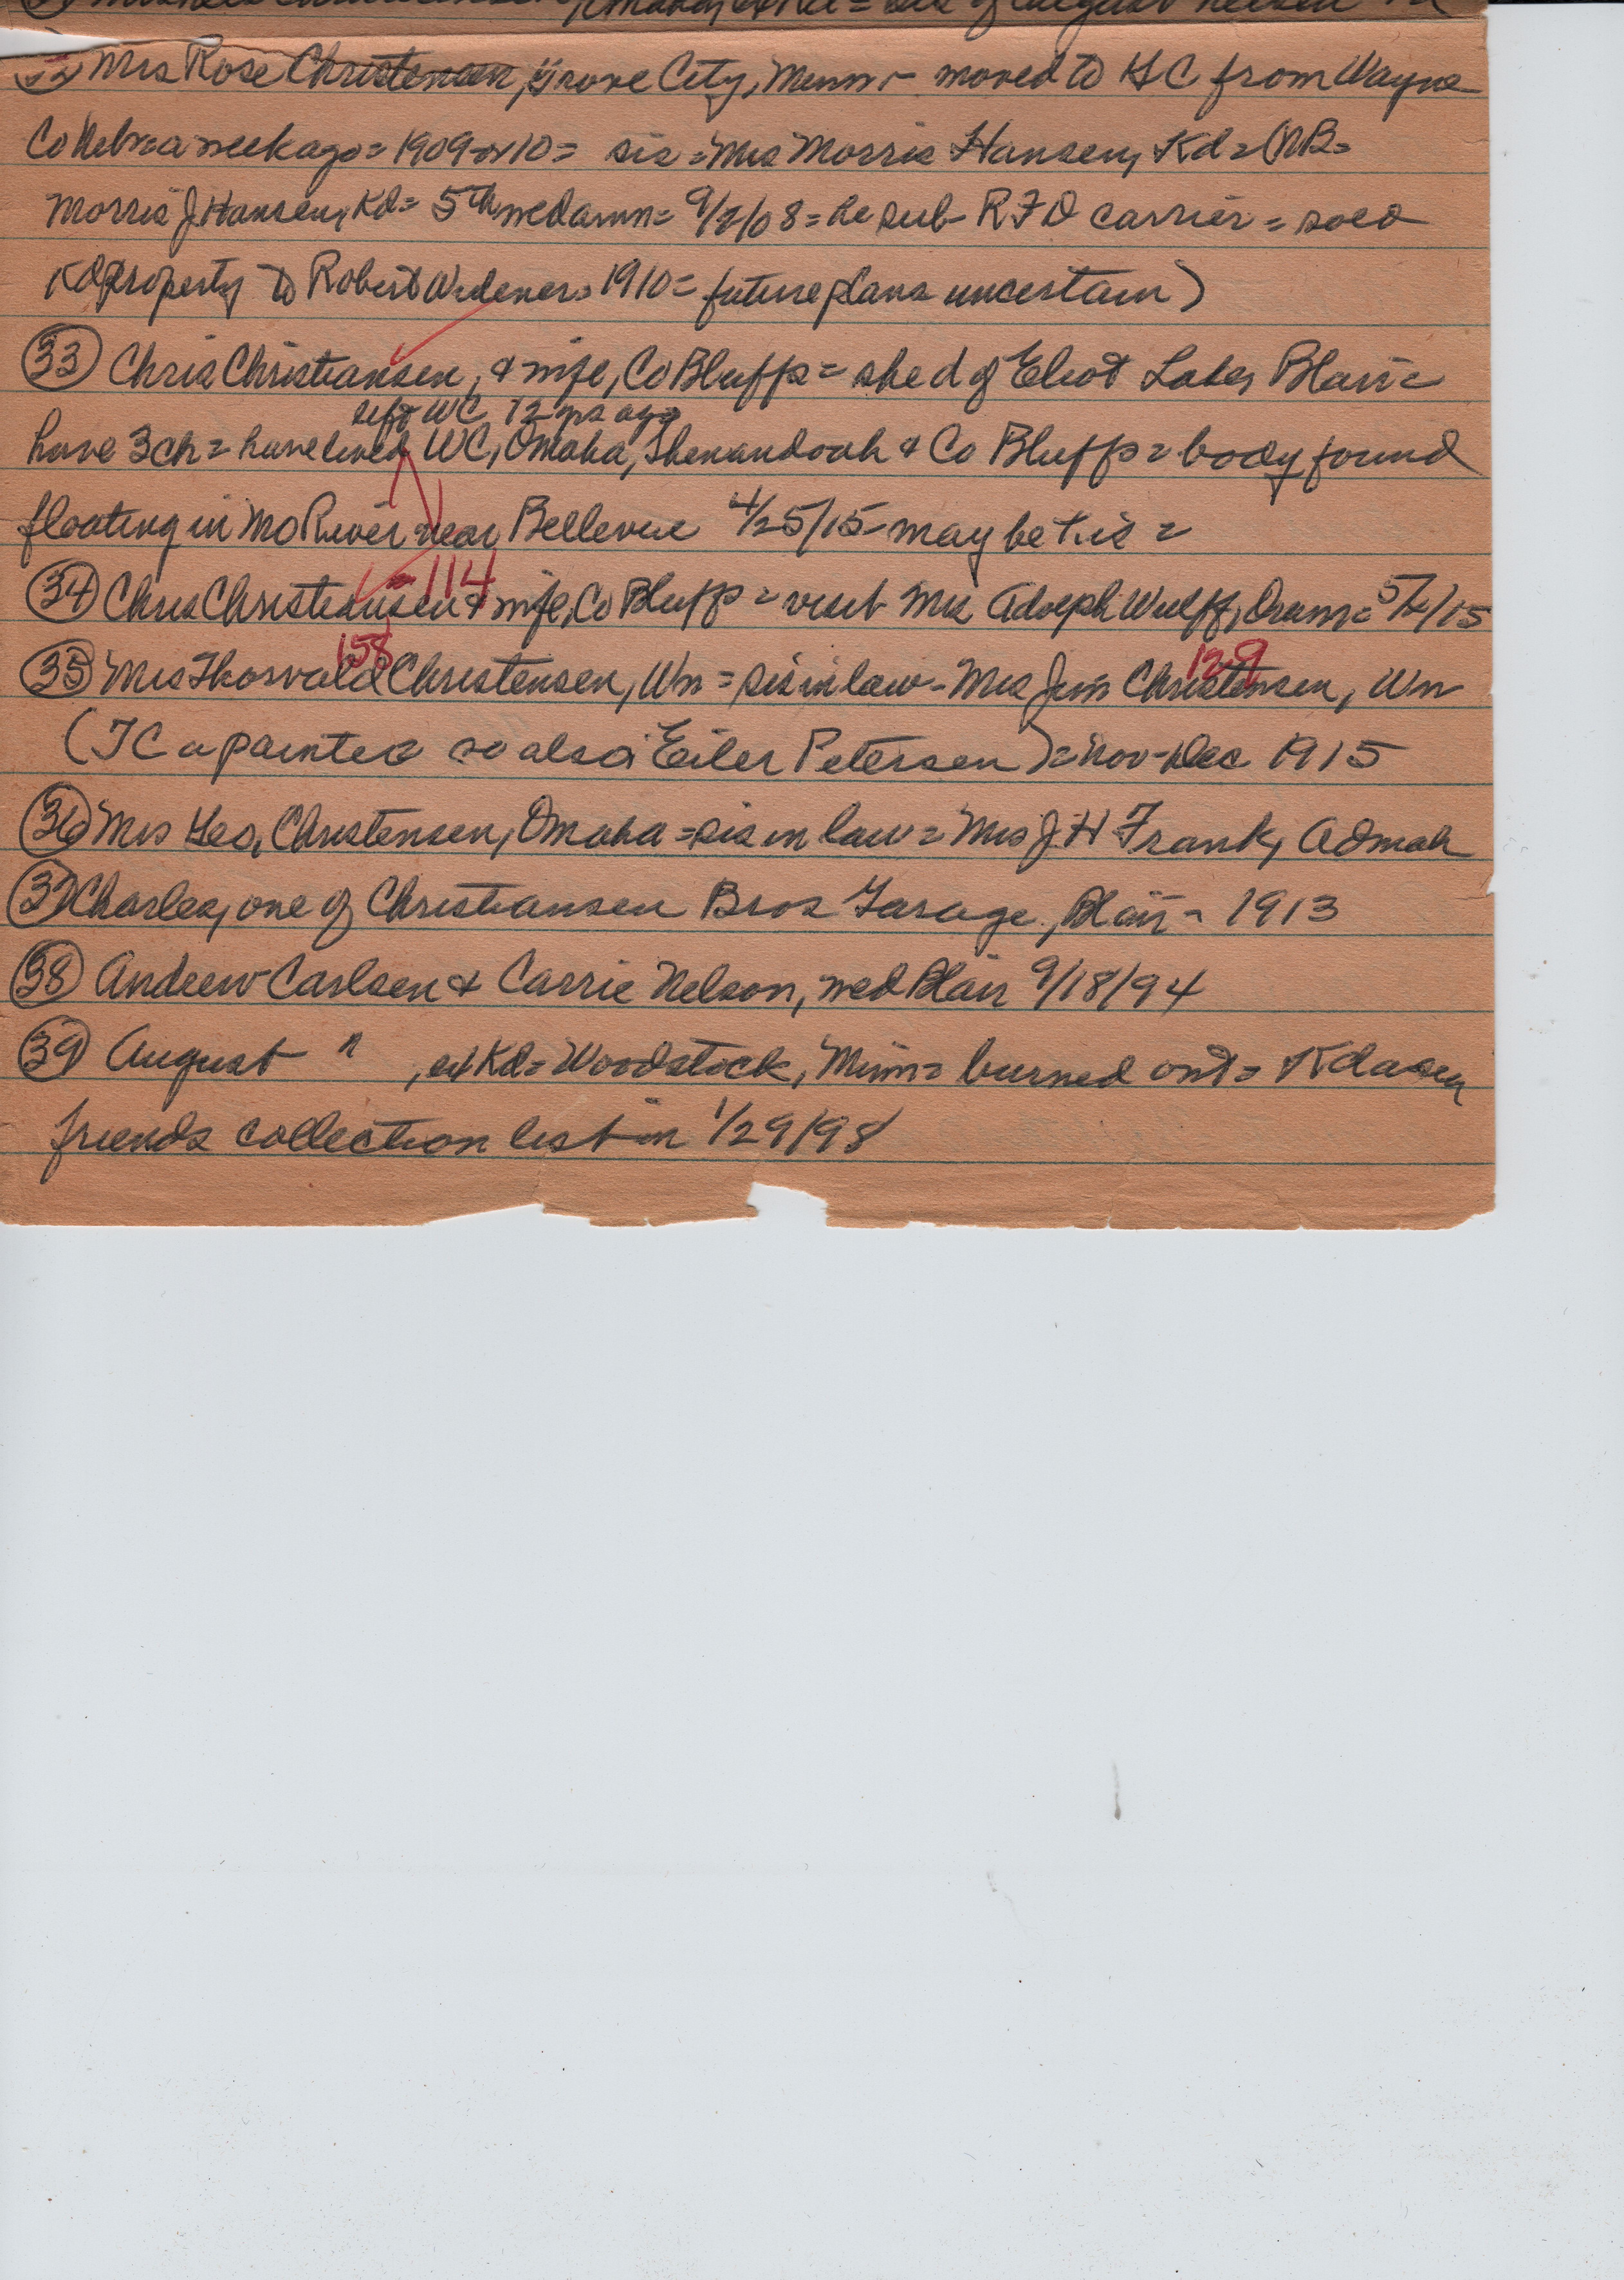 Mrs Rose Christensen, Grove City, Minn - moved to GC from Wayne
Co Nebr = a week ago = 1909 or 10 = sis = Mrs Morris Hansen, Kd = (NB =
Morris J Hansen, Kd = 5th wed ann = 9/2/08 = he sub RFD carrier = sold
Kd property to Robert Widener = 1910 = future plans uncertain)
33 Chris Christiansen, & wife, Co Bluffs = she d of Eliot Blair =
left WC 12 yrs ago
have 3 ch = have lived WC, Omaha, Shenandoah & Co Bluffs = body found
floating in Mo River near Bellevue 4/25/15 - may be his =
= 114
34 Chris Christiansen & wife, Co Bluffs = visit Mrs Adolph Wulff, = 5/ /15
158 129
35 Mrs Thorvald Christensen, Wn = sis in law - Mrs Jim Christensen, Wn
(TC a painter so also Eiler Petersen) = Nov - Dec 1915
36 Mrs Geo, Christensen, Omaha = sis in law = Mrs J H Frank, Admah
37 Charles, one of Christiansen Bros Garage, Blair - 1913
38 Andrew Carlsen & Carrie Nelson, wed Blair 9/18/94
39 August " , ex Kd = Woodstock, Minn = burned out = Kd
friends collection list in 1/29/98